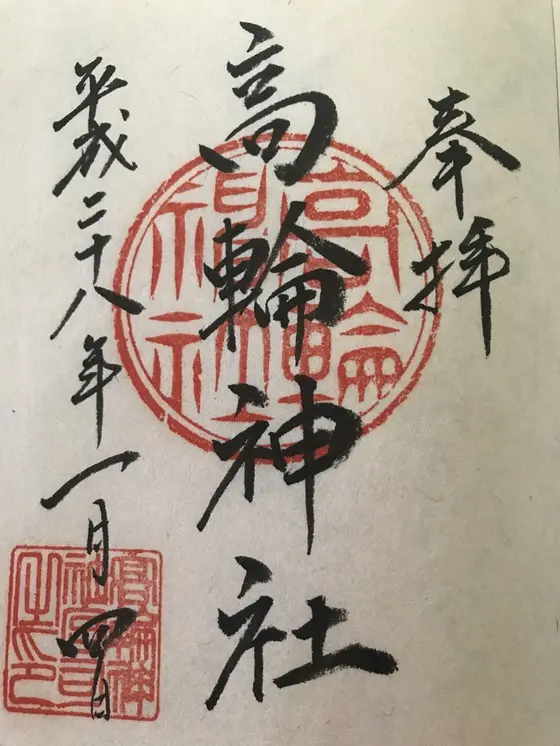 奉拝
高輪神社
平成二十八年一月四日
高輪神社
高輪神社宮司之印